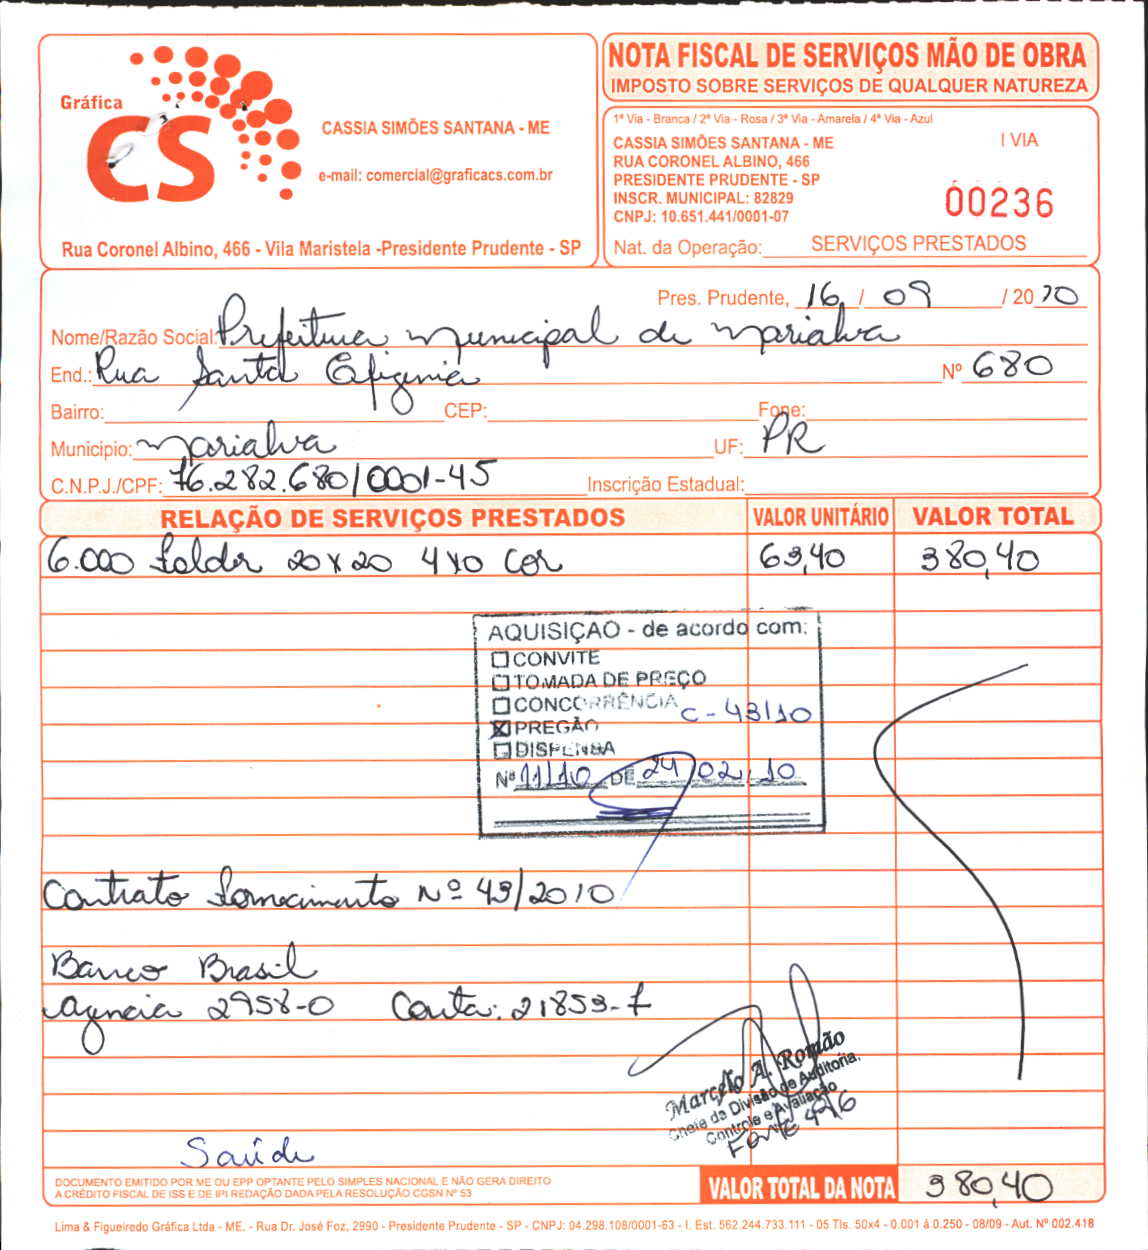 Gráfica
CS
CASSIA SIMÕES SANTANA - ME
e-mail: comercial@graficacs.com.br
Rua Coronel Albino, 466 - Vila Maristela -Presidente Prudente - SP
NOTA FISCAL DE SERVIÇOS MÃO DE OBRA
IMPOSTO SOBRE SERVIÇOS DE QUALQUER NATUREZA
1ª Via - Branca / 2ª Via - Rosa / 3ª Via - Amarela / 4ª Via - Azul
CASSIA SIMÕES SANTANA - ME I VIA
RUA CORONEL ALBINO, 466
PRESIDENTE PRUDENTE - SP
INSCR. MUNICIPAL: 82829
CNPJ: 10.651.441/0001-07
00236
Nat. da Operação: SERVIÇOS PRESTADOS
Pres. Prudente, 16 / 09 / 20 10
Nome/Razão Social: Prefeitura Municipal de Marialva
End.: Rua Santa Efigenia Nº 680
Bairro: CEP: Fone:
Municipio: Marialva UF: PR
C.N.P.J./CPF: 76.282.680/0001-45 Inscrição Estadual:
RELAÇÃO DE SERVIÇOS PRESTADOS VALOR UNITÁRIO VALOR TOTAL
6.000 Folder 20x20 4x0 cor 63,40 380,40
AQUISIÇAO - de acordo com:
CONVITE
TOMADA DE PREÇO
CONCORRÊNCIA C - 43/10
PREGÃO
DISPENSA
Nº 11/10 DE 24/02/10
Contrato Fornecimento Nº 43/2010
Banco Brasil
Agencia 2958-0 Conta: 21853-1
Marcelo A. Romão
Chefe da Divisão de Auditoria,
Controle e Avaliação
Fonte 496
Saúde
DOCUMENTO EMITIDO POR ME OU EPP OPTANTE PELO SIMPLES NACIONAL E NÃO GERA DIREITO
A CRÉDITO FISCAL DE ISS E DE IPI REDAÇÃO DADA PELA RESOLUÇÃO CGSN Nº 53
VALOR TOTAL DA NOTA 380,40
Lima & Figueiredo Gráfica Ltda - ME. - Rua Dr. José Foz, 2990 - Presidente Prudente - SP - CNPJ: 04.298.108/0001-63 - I. Est. 562.244.733.111 - 05 Tls. 50x4 - 0.001 à 0.250 - 08/09 - Aut. Nº 002.418